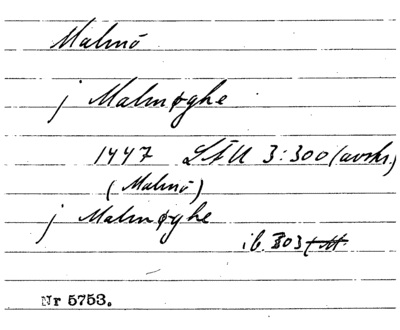 Malmö
j Malmøghe
1447 LÄU 3:300 (avskr.)
(Malmö)
j Malmøghe
ib. 303
Nr 5753.